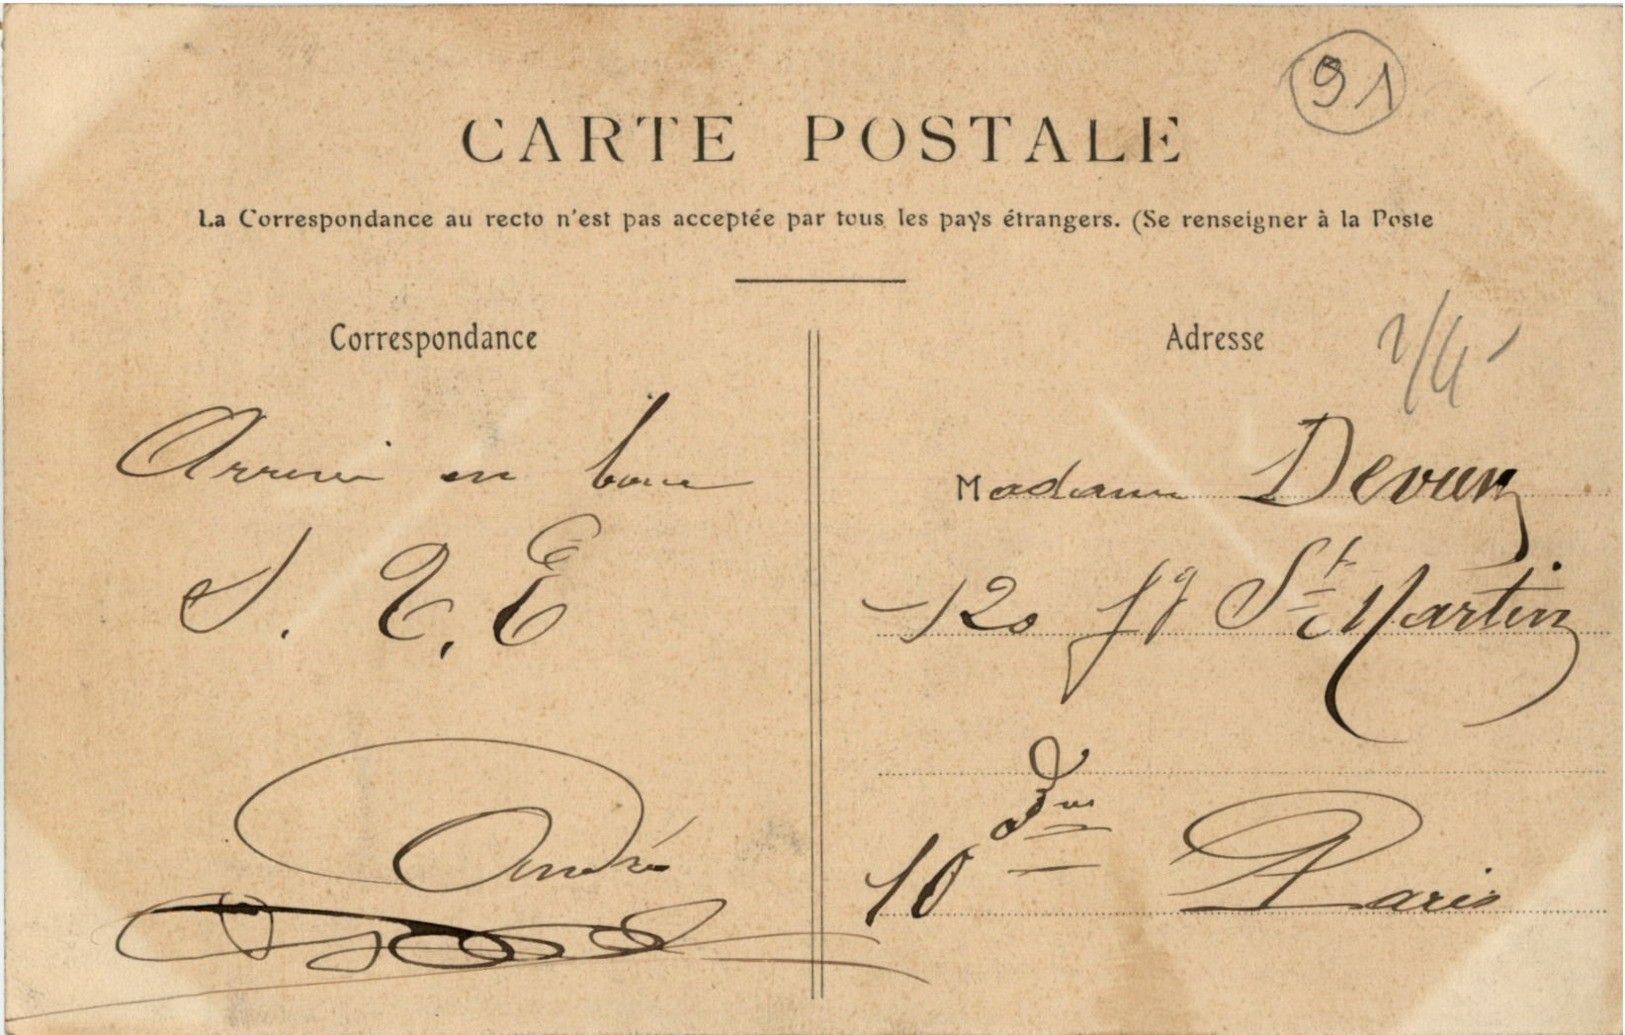 91
CARTE POSTALE
La Correspondance au recto n'est pas acceptée par tous les pays étrangers. (Se renseigner à la Poste
Correspondance
Arrivé en bonne
S. T. E
André
Adresse
Madame Devun
120 fg St Martin
10 Paris